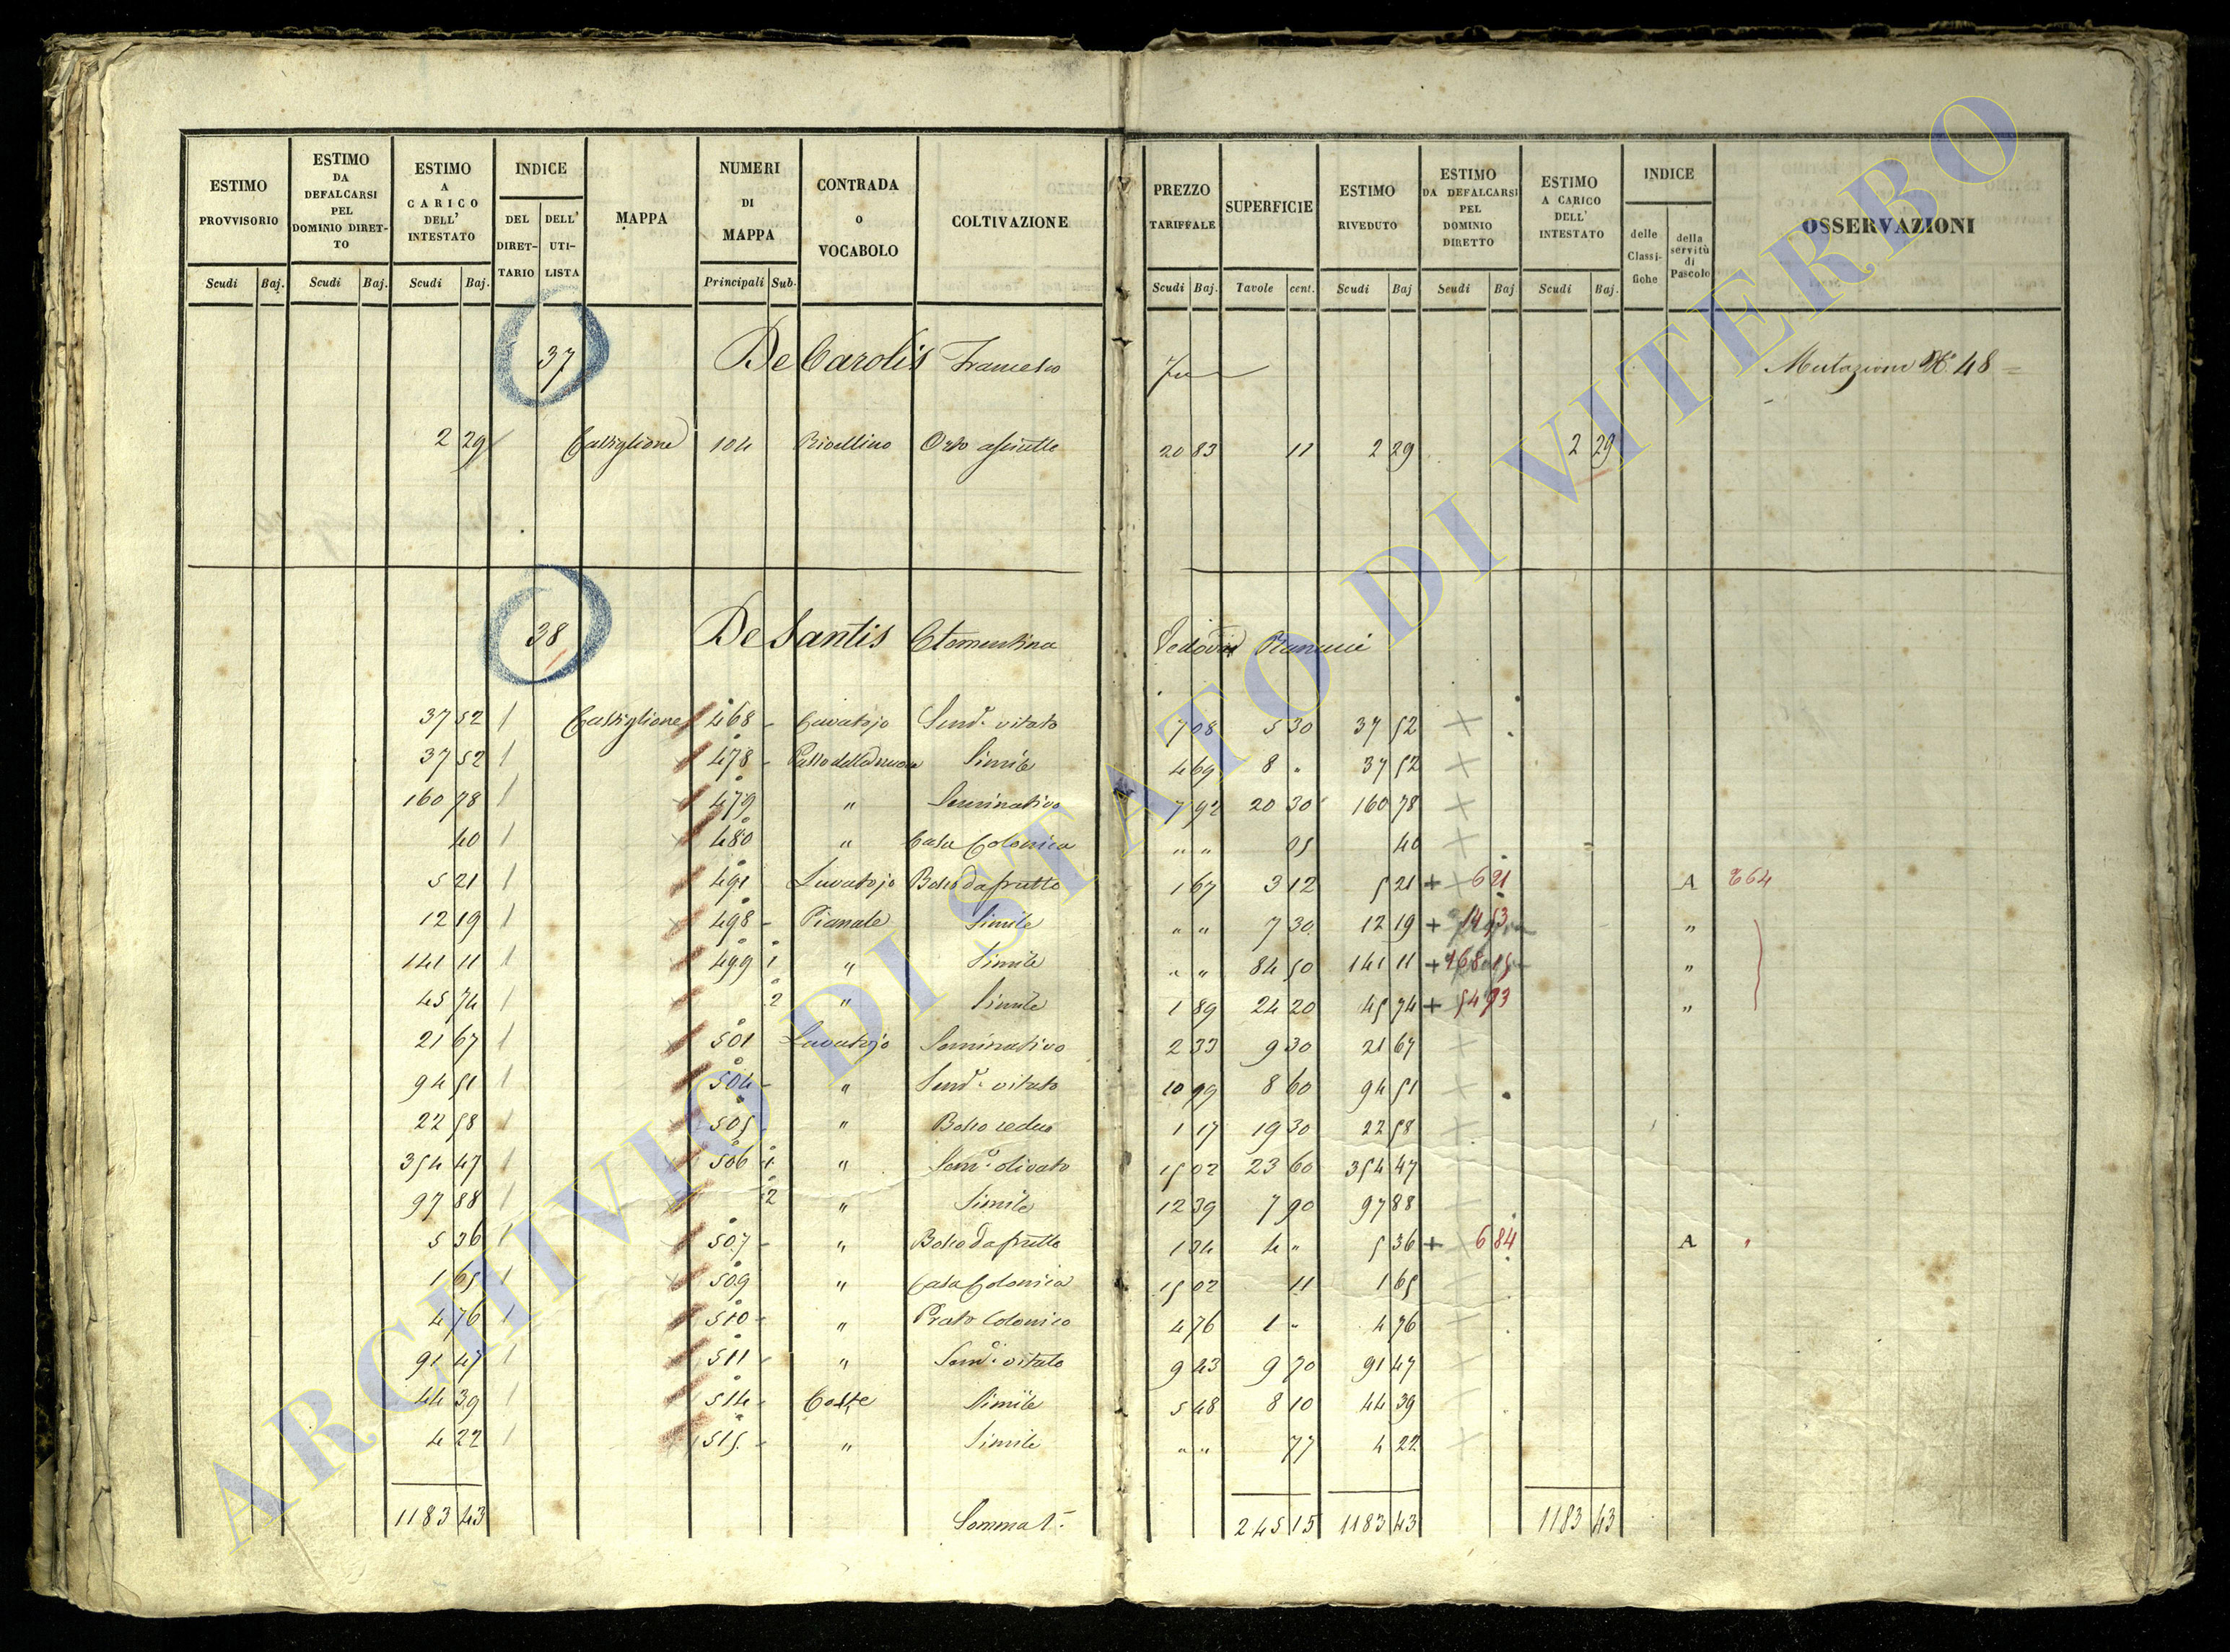 ESTIMO PROVVISORIO | ESTIMO DA DEFALCARSI PEL DOMINIO DIRET-TO | ESTIMO A CARICO DELL' INTESTATO | INDICE DEL DIRET-TARIO | DELL' UTI-LISTA | MAPPA | NUMERI DI MAPPA | CONTRADA o VOCABOLO | COLTIVAZIONE | PREZZO TARIFFALE | SUPERFICIE | ESTIMO RIVEDUTO | ESTIMO DA DEFALCARSI PEL DOMINIO DIRETTO | ESTIMO A CARICO DELL' INTESTATO | INDICE delle Classi-fiche | della servitù di Pascolo | OSSERVAZIONI
Scudi Baj. Scudi Baj. Scudi Baj. Principali Sub. Scudi Baj. Tavole cent. Scudi Baj Scudi Baj Scudi Baj.
37 De Carolis Francesco Mutazione N° 48
2 29 Castiglione 104 Rivellino Orto asciutto 20 83 11 2 29 2 29
38 De Santis Clementina Vedova Ranucci
37 52 1 Castiglione 468 Cavatojo Sem° vitato 7 08 5 30 37 52
37 52 1 478 Simile 4 69 8 " 37 52
160 78 1 479 " Seminativo 7 92 20 30 160 78
40 1 480 " Casa Colonica " " 05 40
5 21 1 491 Lavatojo Bosco da frutto 1 67 3 12 5 21 + 6 21 A 664
12 19 1 498 Pianale Simile " " 7 30 12 19 + 14 53 "
141 11 1 499 1 " Simile " " 84 50 141 11 + 168 15 "
45 74 1 2 " Simile 1 89 24 20 45 74 + "
21 67 1 501 Lavatojo Seminativo 2 33 9 30 21 67
94 51 1 504 " Sem° vitato 10 99 8 60 94 51
22 58 1 505 " Bosco ceduo 1 17 19 30 22 58
354 47 1 506 1 " Sem° olivato 15 02 23 60 354 47
97 88 1 2 " Simile 12 39 7 90 97 88
5 36 1 507 " Bosco da frutto 1 34 4 " 5 36 + 6 84 A "
1 65 1 509 " Casa Colonica 15 02 11 1 65
4 76 1 510 " Prato Colonico 4 76 1 " 4 76
91 47 1 511 " Sem° vitato 9 43 9 70 91 47
44 39 1 514 Coste Simile 5 48 8 10 44 39
4 22 1 515 " Simile " " 77 4 22
1183 43 Sommat. 245 15 1183 43 1183 43
ARCHIVIO DI STATO DI VITERBO